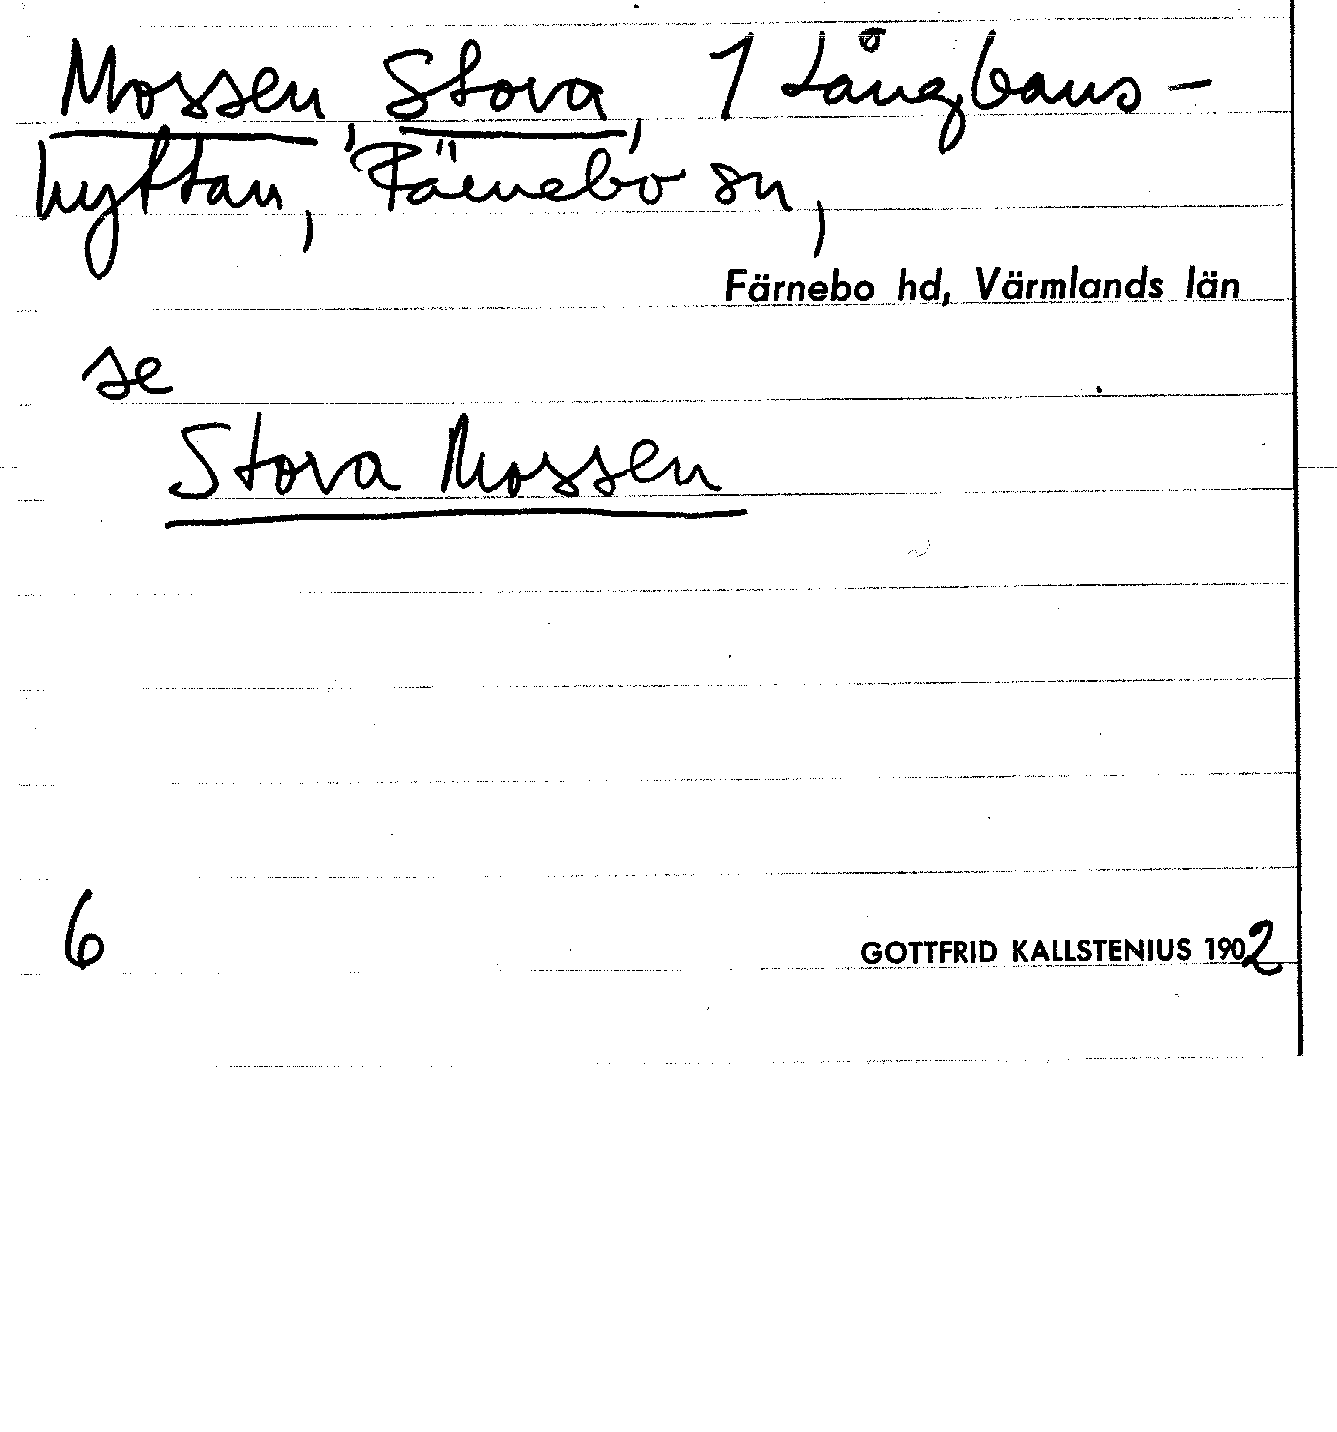 Mossen, Stora, 1 Långbans-
hyttan, Färnebo sn,
Färnebo hd, Värmlands län
se
Stora Mossen
6
GOTTFRID KALLSTENIUS 1902